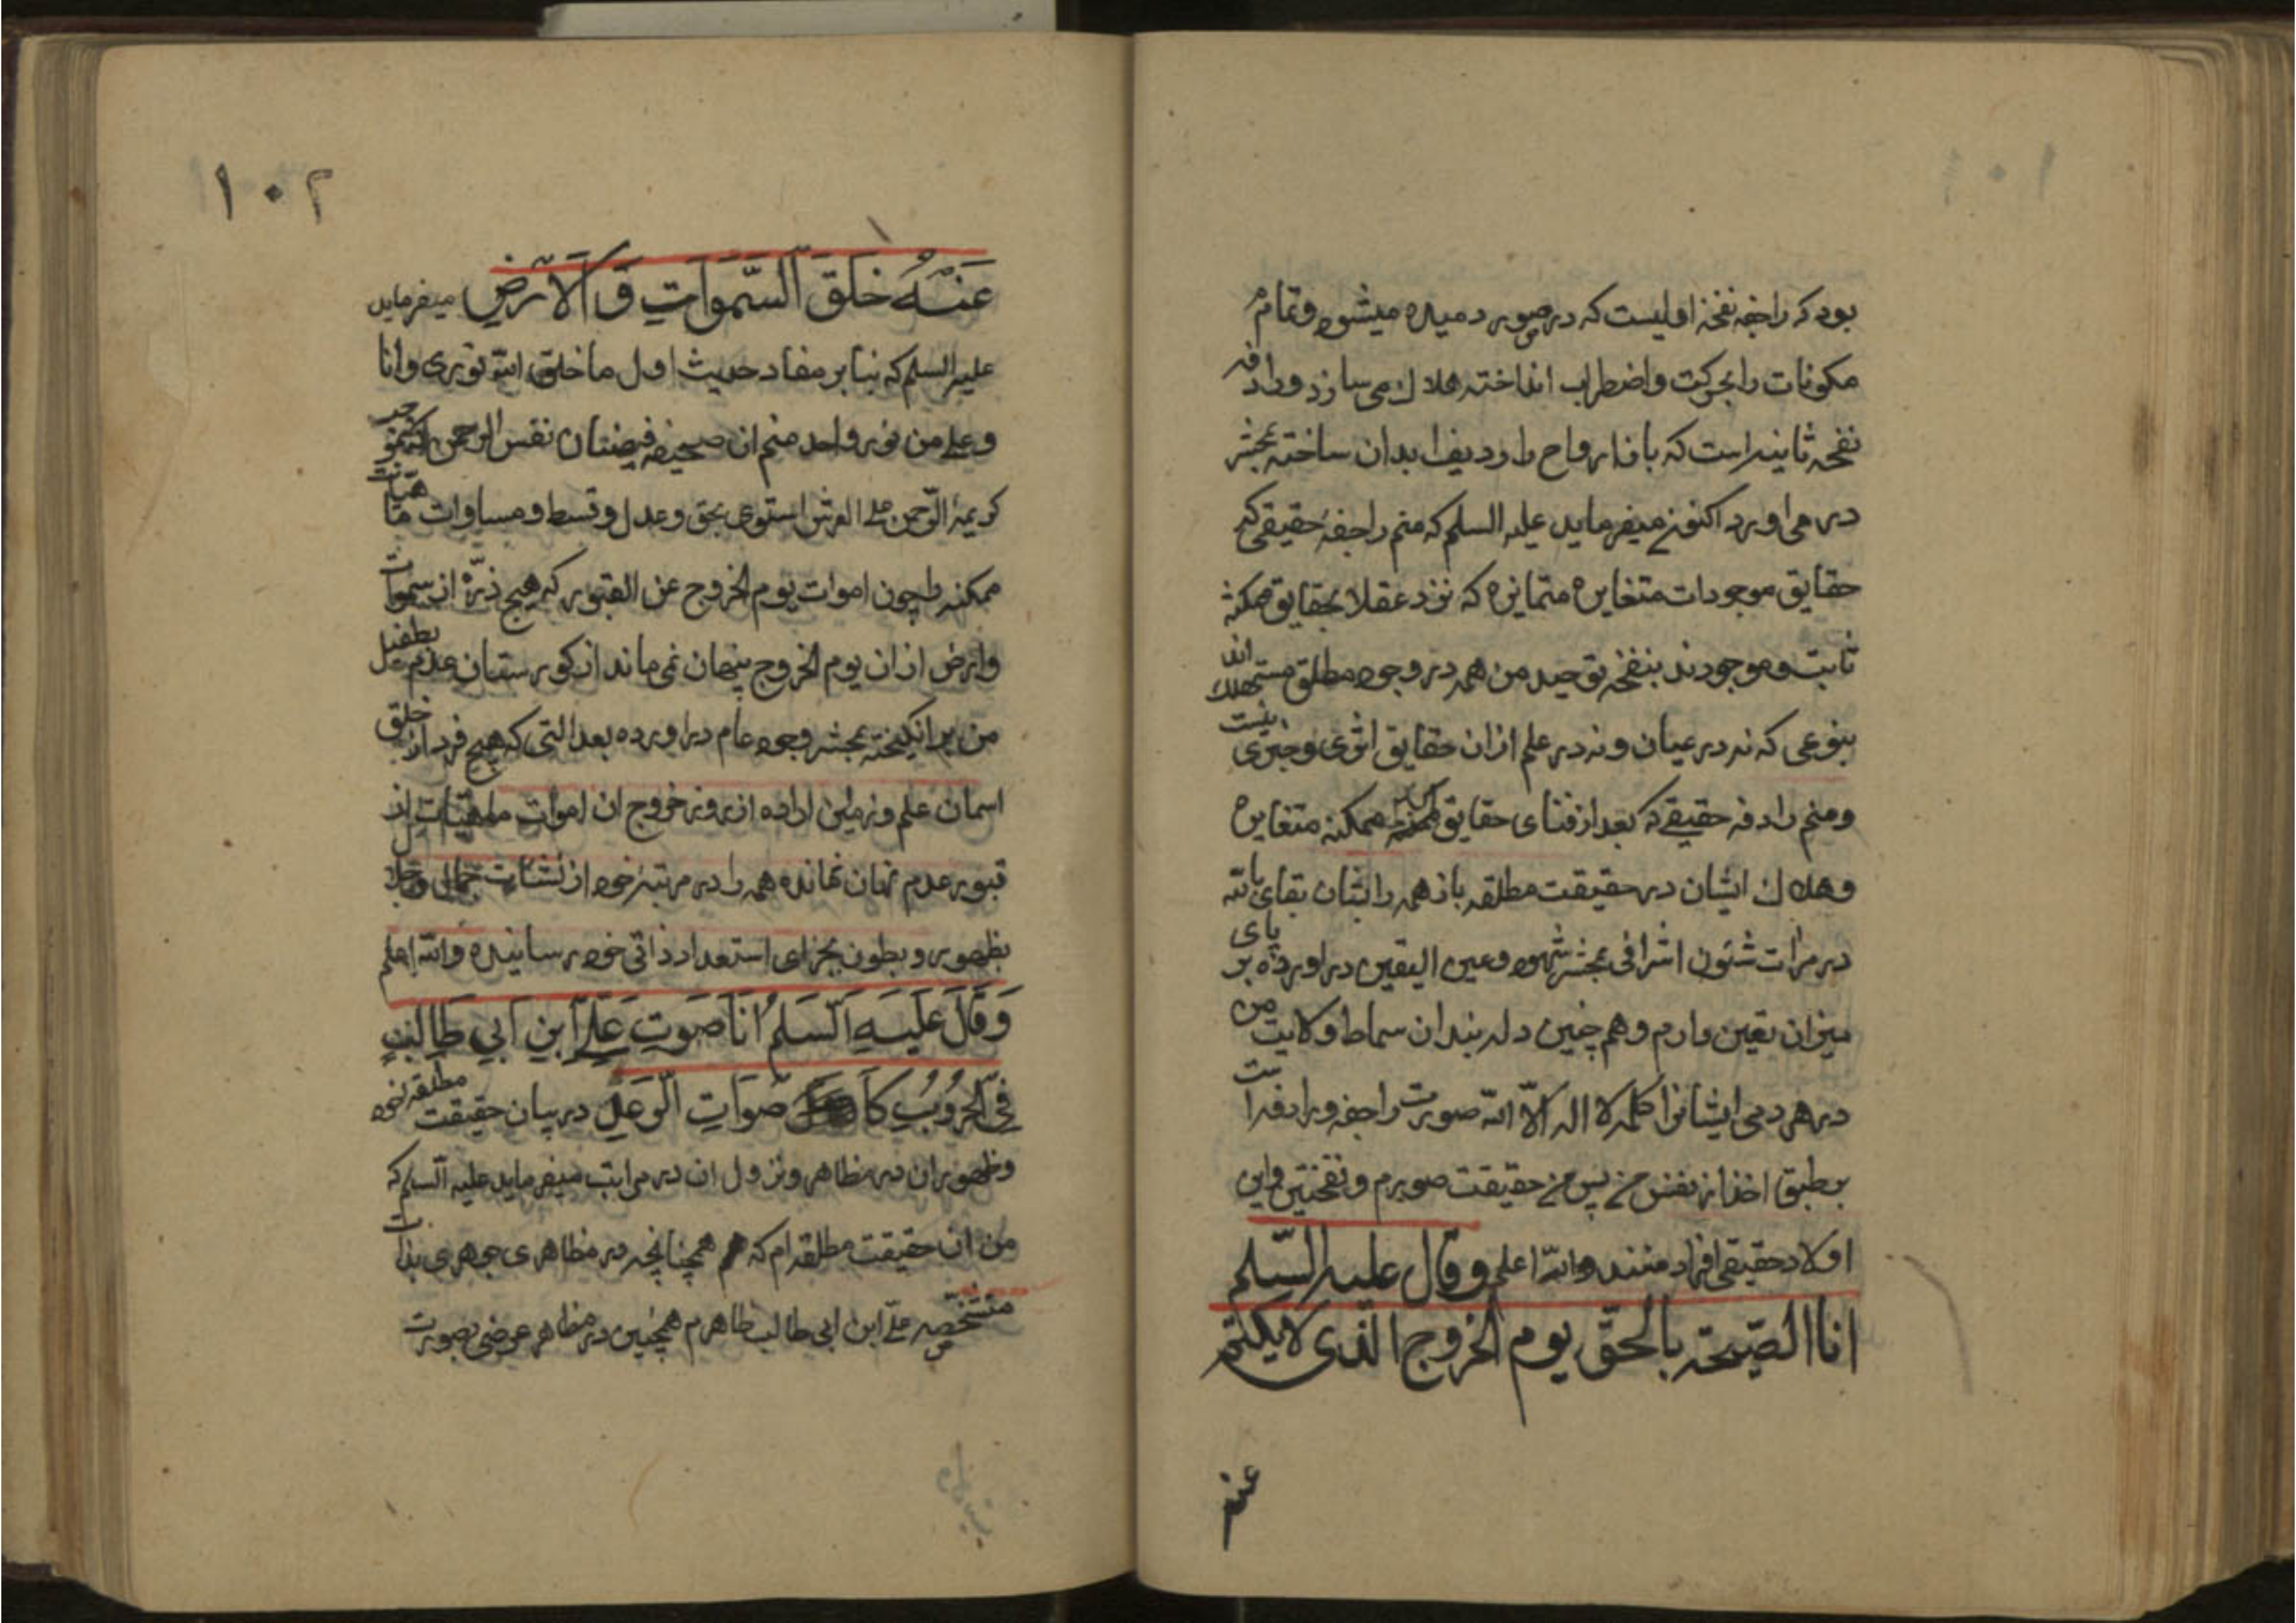 بود که راجفه نفخهٔ اولیست که در صور دمیده میشود و تمام
مکونات را بحرکت واضطراب انداخته هلاک می سازد ورادفه
نفخهٔ ثانیه است که باز ارواح را ردیف ابدان ساخته بحشر
در می اورد اکنون میفرماید علیه السلم که منم راجفهٔ حقیقی که
حقایق موجودات متغایره متمایزه که نزد عقلا بحقایق ممکنه
ثابت و موجودند بنفخهٔ توحید من همه در وجود مطلق مستهلک اند
بنوعی که نه در عیان و نه در علم ازان حقایق اثری و خبری نیست
ومنم رادفه حقیقی که بعد از فنای حقایق ممکنه متغایره
و هلاک ایشان در حقیقت مطلقه باز همه را بشان بقای بالله
در مرات شئون اشراقی بحشر شهود وعین الیقین دراورده بر پای
میزان یقین دارم و هم چنین دل بندان سماط ولایت من
در هر دمی ایشانرا کلمه لا اله الا الله صورت راجفه و رادفه است
بر طبق اخذ از نفس من پس من حقیقت صورم و نفختین واین
اولاد حقیقی افراد منند والله اعلم وقال علیه السلم
انا الصیحة بالحق یوم الخروج الذی لا یکتم
عنه
۱۰۲
عَنْهُ خَلَقَ السَّمَوَاتِ وَالاَرضِ میفرماید
علیه السلم که بنا بر مفاد حدیث اول ما خلق الله نوری وانا
وعلی من نور واحد منم ان صحیفه نفس الرحمن
کریمهٔ الرحمن علی العرش استوی بحق وعدل وقسط و مساوات
ممکنه را چون اموات یوم الخروج عن القبور که هیچ ذرّه از سموات
وارض ازان یوم الخروج پنهان نمی ماند از کورستان عدم بطفیل
من بر انکیخته بحشر وجود عام دراورده بعد التی که هیچ فرد از خلق
اسمان علم و زمین اراده از روز خروج ان اموات از
قبور عدم نهان نمانده همه را در مرتبهٔ خود از نشئات جمال وجلال
بظهور و بطون بجزای استعداد ذاتی خود رسانیده والله اعلم
وَقَالَ عَلَیهِ السَّلَمُ اَنَا صَوتِ عَلِی ابنِ اَبی طَالِبٍ
فِی الحُرُوبُ کَا صَوَاتِ الَّوَعلِ در بیان حقیقت مطلقه
وظهور ان در مظاهر و نزول ان در مراتب میفرماید علیه السلم که
من ان حقیقت مطلقه ام که همچنانچه در مظاهری جوهری بذات
متشخّصه علی ابن ابی طالب ظاهرم همچنین در مظاهر عرضی بصورت